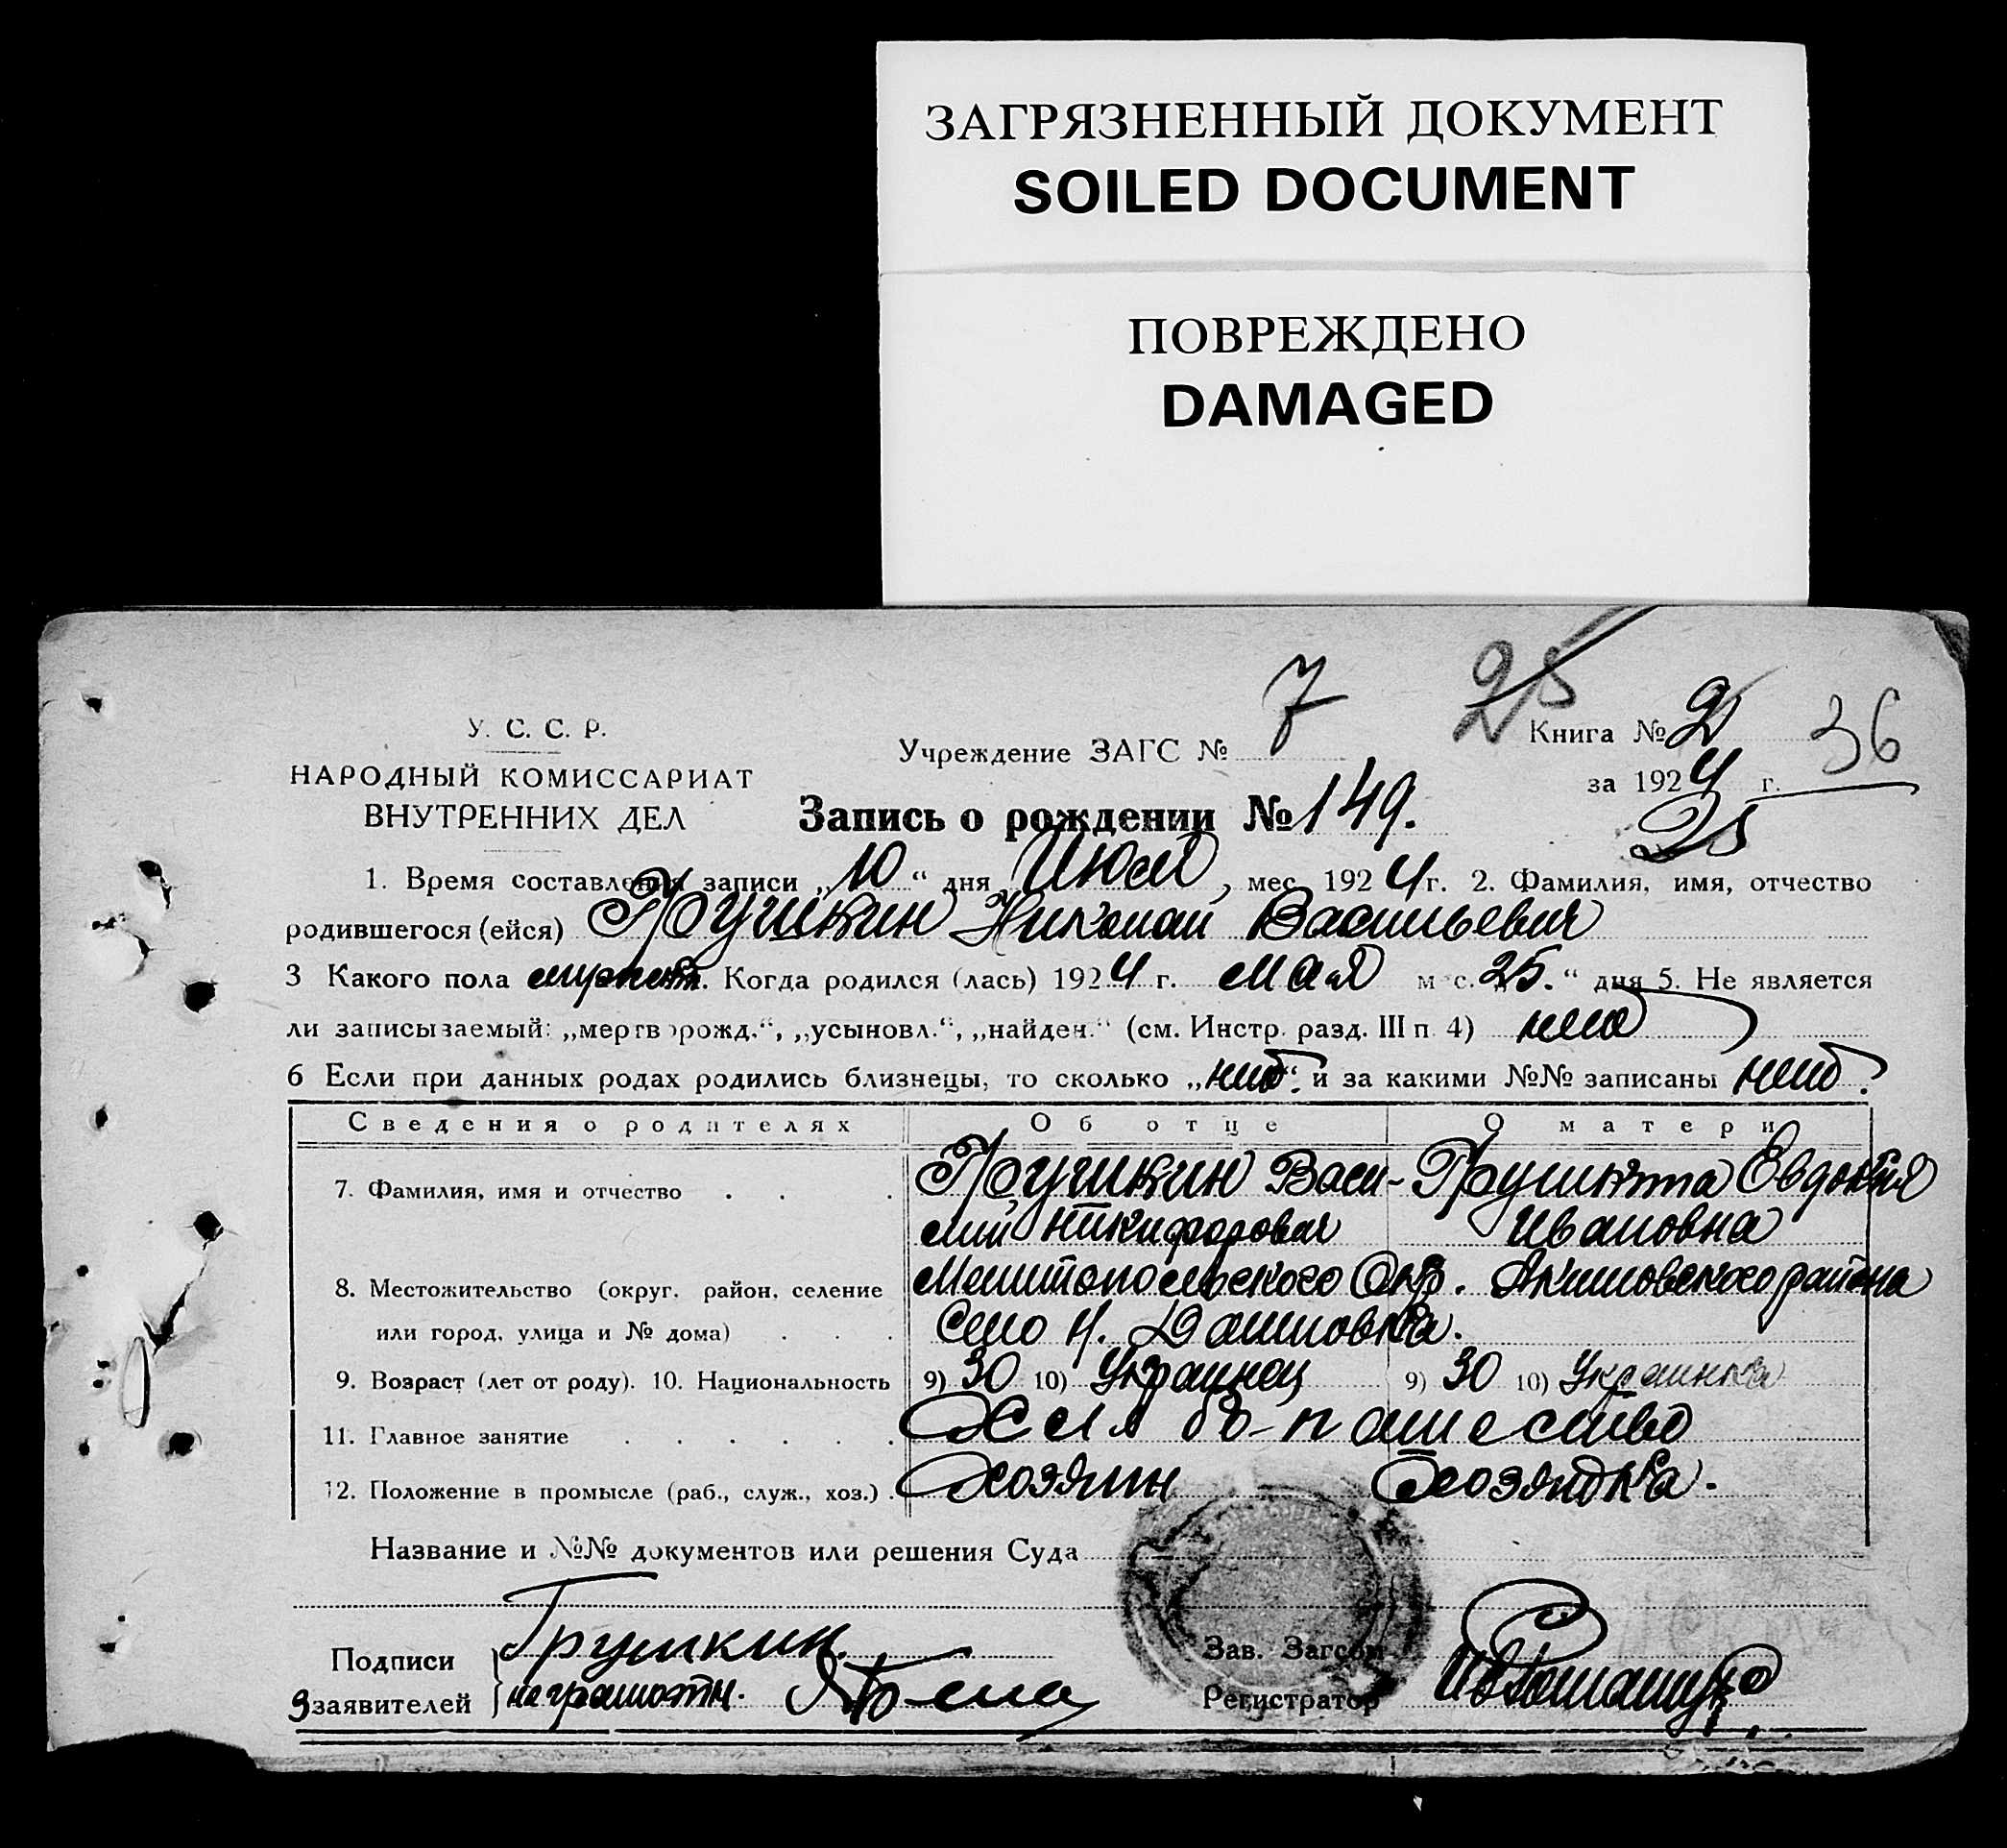 ЗАГРЯЗНЕННЫЙ ДОКУМЕНТ
SOILED DOCUMENT
ПОВРЕЖДЕНО
DAMAGED
7 25
У. С. С. Р.
Учреждение ЗАГС №
Книга № 2 36
НАРОДНЫЙ КОМИССАРИАТ
за 1924 г.
ВНУТРЕННИХ ДЕЛ
Запись о рождении № 149.
25
1. Время составления записи „10“ дня Июля, мес. 1924 г. 2. Фамилия, имя, отчество
родившегося (ейся) Грушкин Николай Васильевич
3 Какого пола Когда родился (лась) 1924 г. мая м с. 25. “ дня 5. Не является
ли записываемый: „мертворожд.“, „усыновл.“, „найден.“ (см. Инстр. разд. III п. 4) нет
6 Если при данных родах родились близнецы, то сколько „нет“. и за какими №№ записаны нет.
Сведения о родителях Об отце О матери
7. Фамилия, имя и отчество . . . Грушкин Васи- Евдокия
лий Никифорович Ивановна
8. Местожительство (округ, район, селение Мелитопольского Окр. Акимовского района
или город, улица и № дома) . . . Село Н. Даниловка.
9. Возраст (лет от роду). 10. Национальность 9) 30 10) Украинец 9) 30 10) Украинка
11. Главное занятие . . . . . . Хлебопашество
12. Положение в промысле (раб., служ., хоз.) . Хозяин Хозяйка.
Название и №№ документов или решения Суда
Подписи Грушкин. Зав. Загсом
заявителей неграмотн. Регистратор